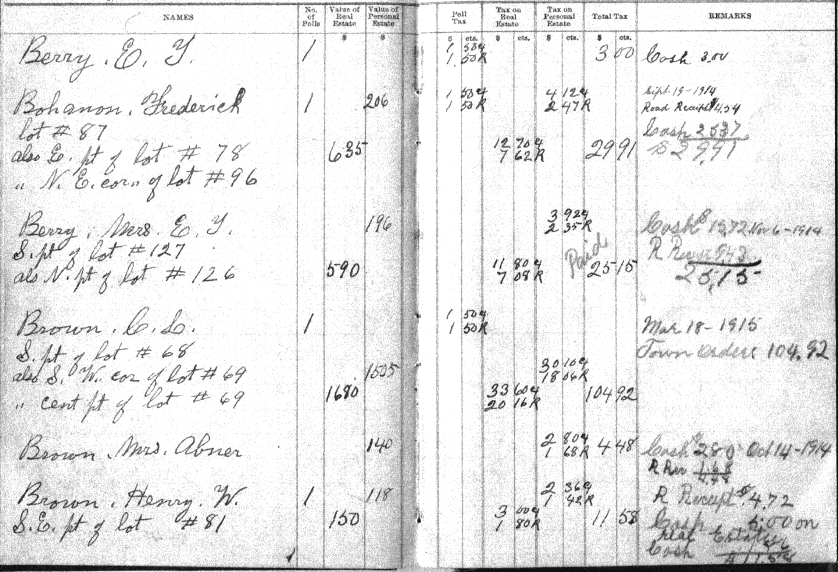 NAMES No. of Polls Value of Real Estate Value of Personal Estate Poll Tax Tax on Real Estate Tax on Personal Estate Total Tax REMARKS
$ $ $ cts. $ cts. $ cts. $ cts.
Berry, E. Y. 1 1 50 1 50R 3 00 Cash 3.00
Bohanon, Frederick 1 206 1 50 1 50R 4 12 2 47R Sept. 19-1914
Road Receipt $4.54
lot # 87 Cash 25.37
also E. pt of lot # 78 635 12 70 7 62R 29 91 $29,91
" N. E. cor " of lot # 96
Berry, Mrs. E. Y. 196 3 92 2 35R Cash $15,72 Nov 6-1914
S. pt of lot # 127 Paid R 9,43
also N. pt of lot # 126 590 11 80 7 08R 25 15 25,15
Brown, C. L. 1 1 50 1 50R Mar 18-1915
S. pt of lot # 68 Town Orders 104.92
also S. W. cor of lot # 69 1505 30 10 18 06R
" cent pt of lot # 69 1680 33 60 20 16R 104 92
Brown, Mrs. Abner 140 2 80 1 68R 4 48 Cash $2.80 Oct 14-1914
R Rec 1.68
4.48
Brown, Henry, W. 1 118 2 36 1 42R R Receipt $4.72
S.E. pt of lot # 81 150 3 00 1 80R 11 58 Cash 5.00 on
real Estate
Cash